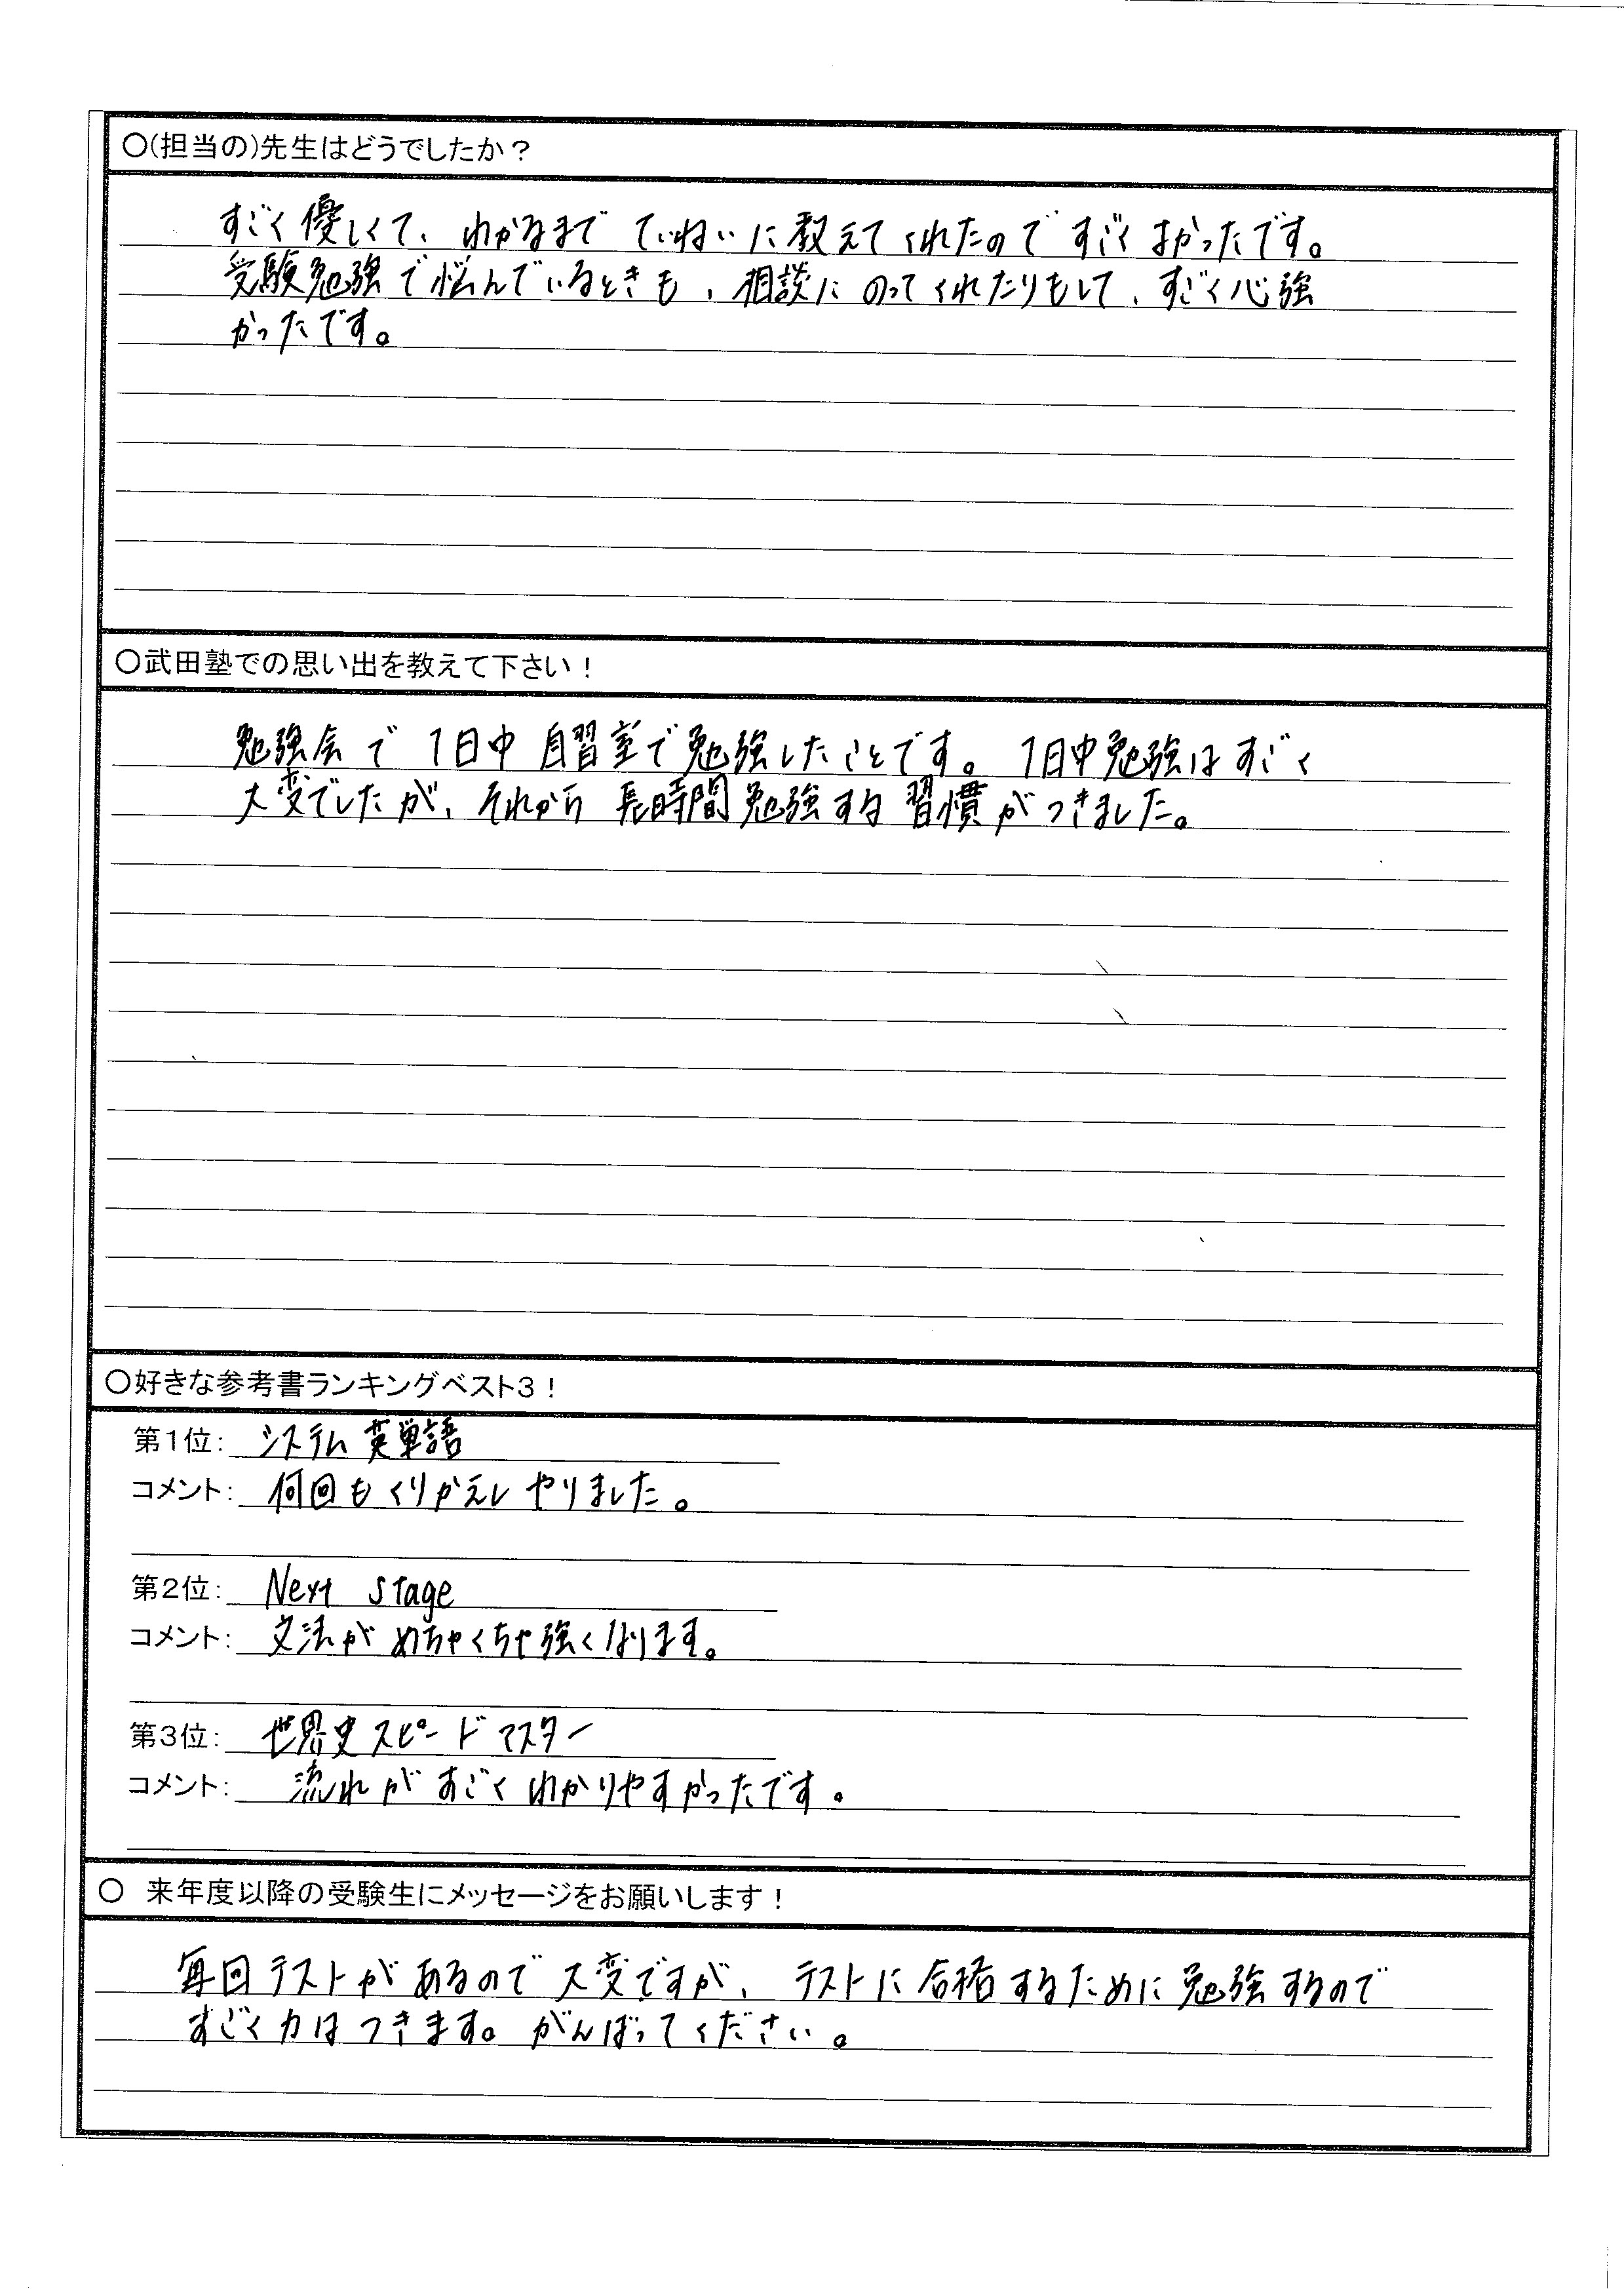 〇(担当の)先生はどうでしたか？
すごく優しくて、わかるまで ていねいに教えてくれたので すごくよかったです。
受験勉強で悩んでいるときも、相談にのってくれたりもして、すごく心強
かったです。
〇武田塾での思い出を教えて下さい！
勉強会で 1日中 自習室で勉強したことです。 1日中勉強はすごく
大変でしたが、それから 長時間勉強する習慣がつきました。
〇好きな参考書ランキングベスト3！
第1位： システム英単語
コメント： 何回もくりかえしやりました。
第2位： Next Stage
コメント： 文法がめちゃくちゃ強くなります。
第3位： 世界史スピードマスター
コメント： 流れがすごくわかりやすかったです。
〇 来年度以降の受験生にメッセージをお願いします！
毎回テストがあるので大変ですが、テストに合格するために勉強するので
すごく力はつきます。がんばってください。